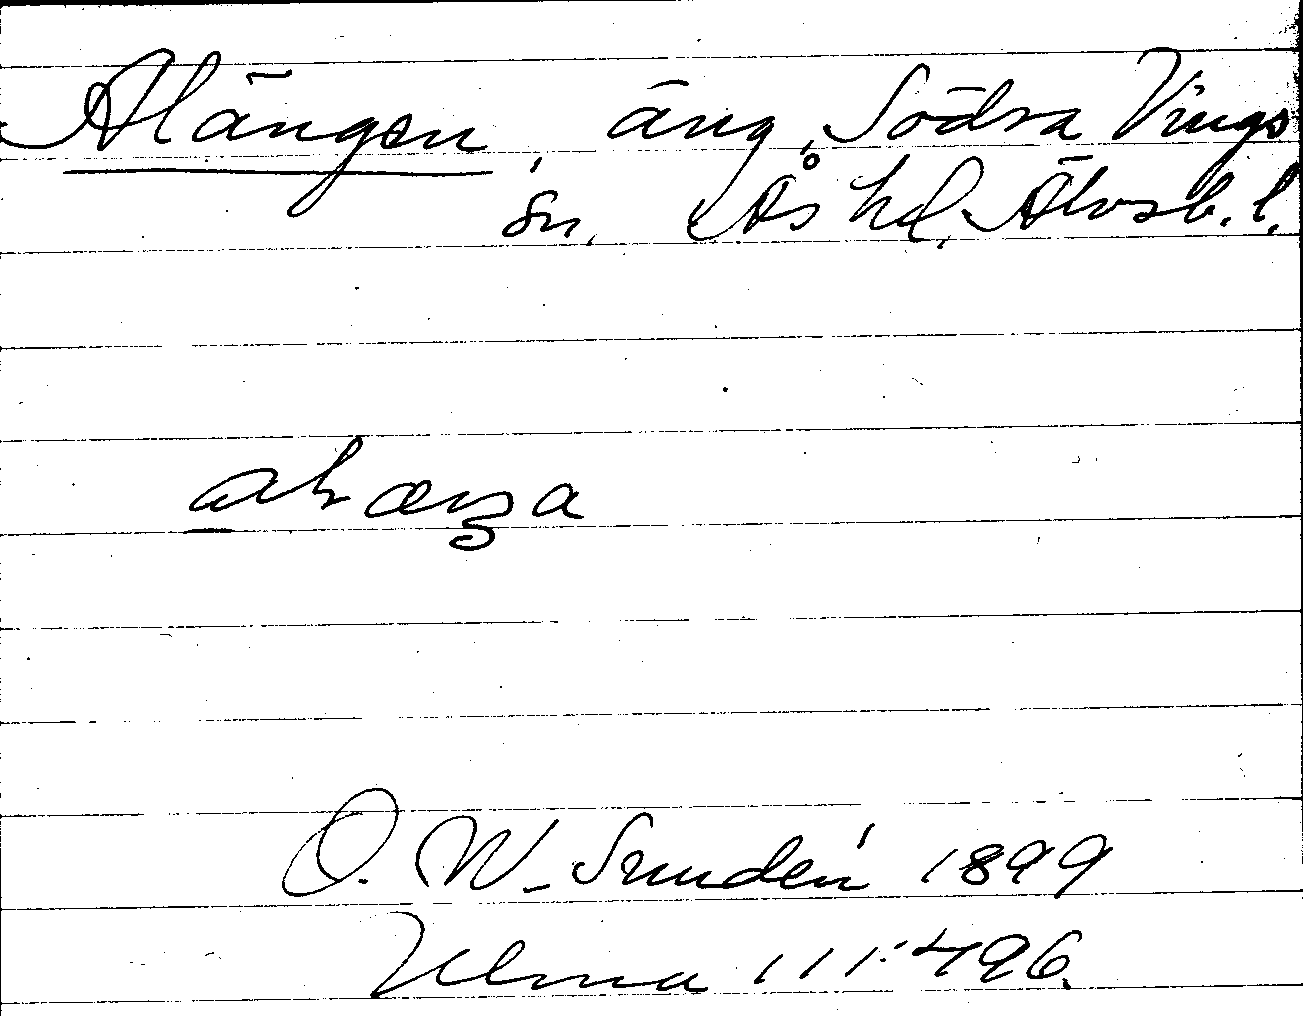 Alängen, äng, Södra Vings
sn, Ås hd, Älvsb. l.
O. W. Sundén 1899
Ulma 111:496.